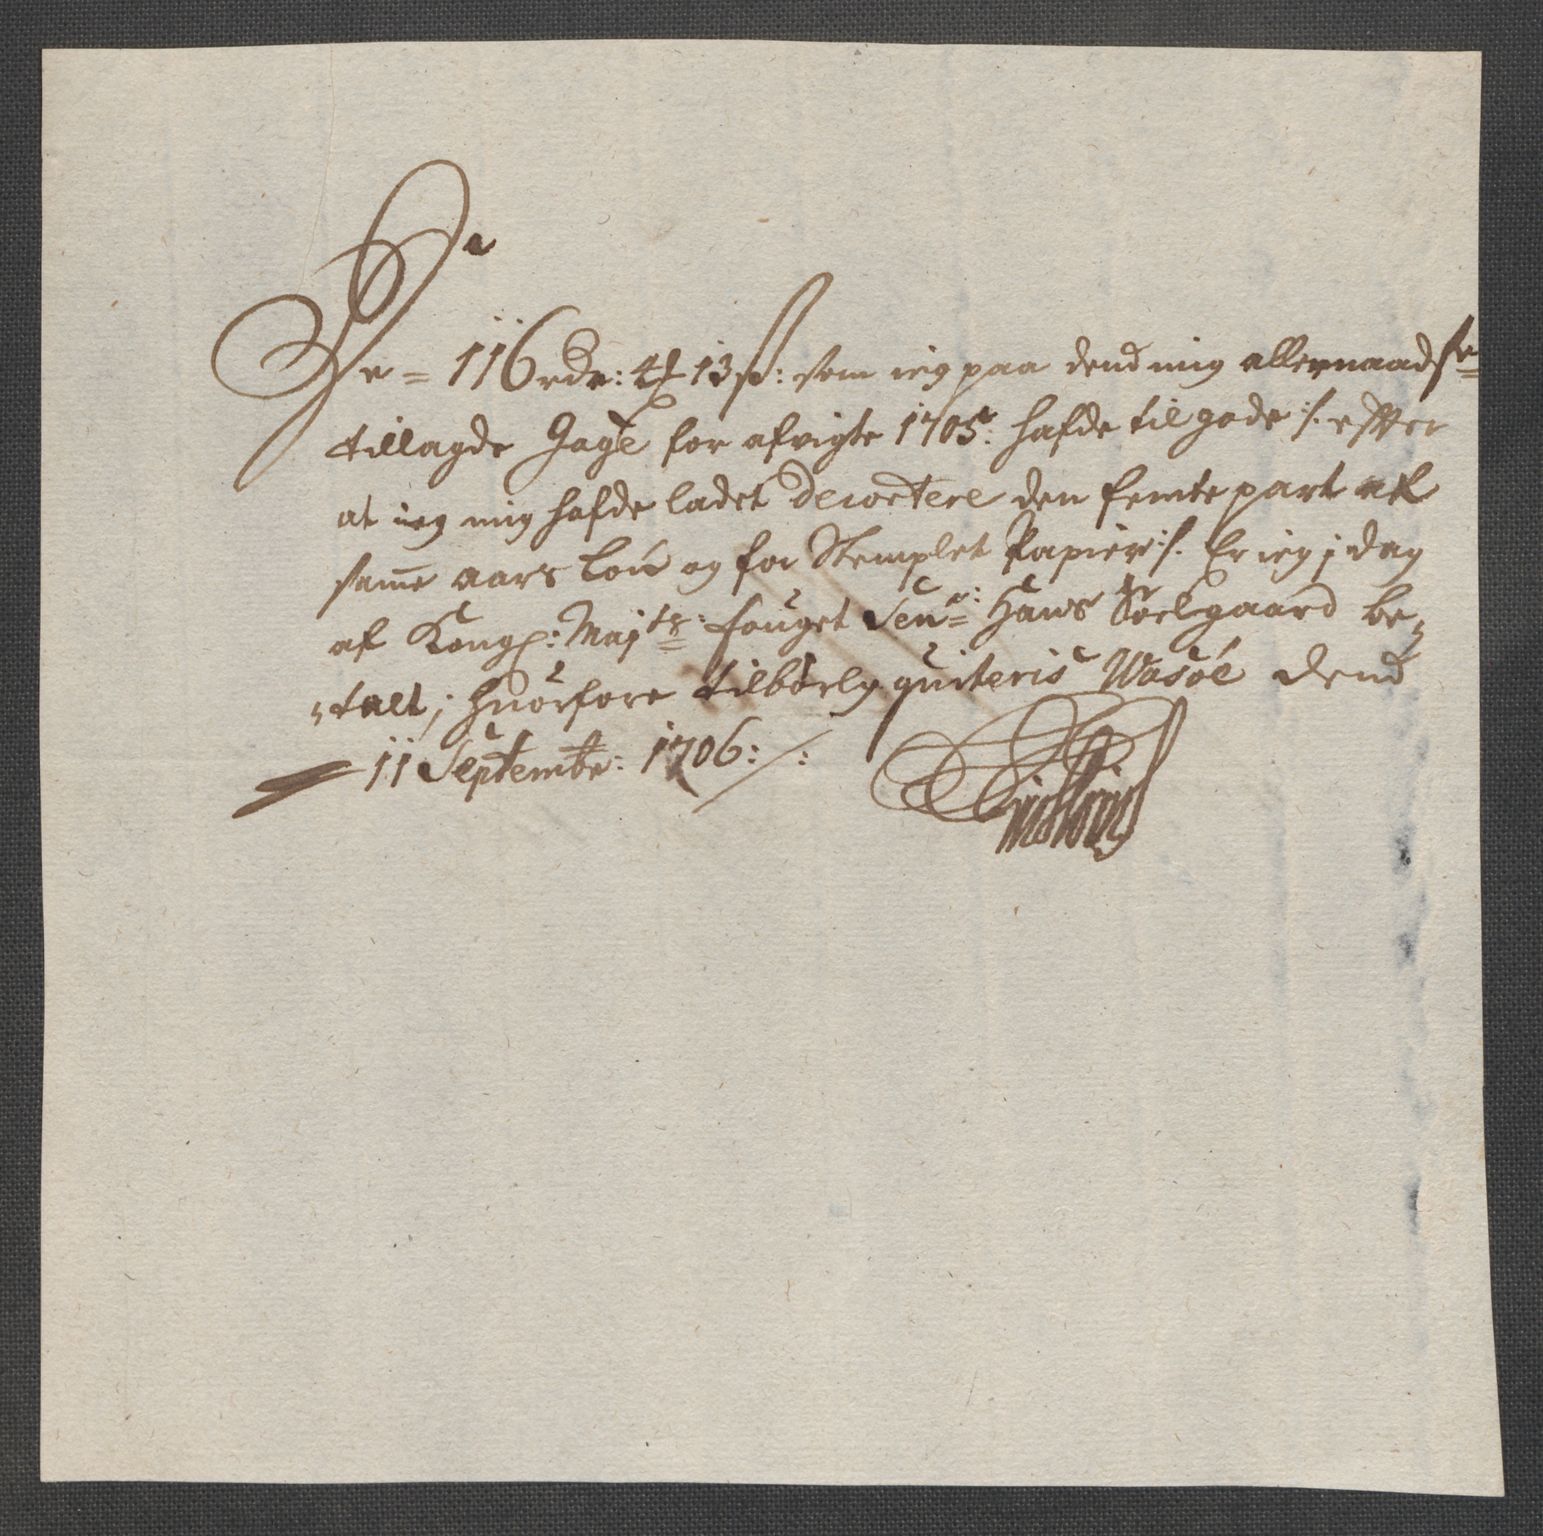 De = 116 rdr: 4 ꝑ 13 ß: som ieg paa dend mig allernaadste
tillagde Gage for afvigte 1705: hafde til gode /: effter
at ieg mig hafde ladet decortere den femte part af
samme aars Lön og for Stemplet Papier :/. Er ieg i dag
af Kongl: Majts: fouget Seigr: Hans Soelgaard be-
talt; huorfore tilbörlig quiteris Wasöe dend
11 Septembr: 1706:/: